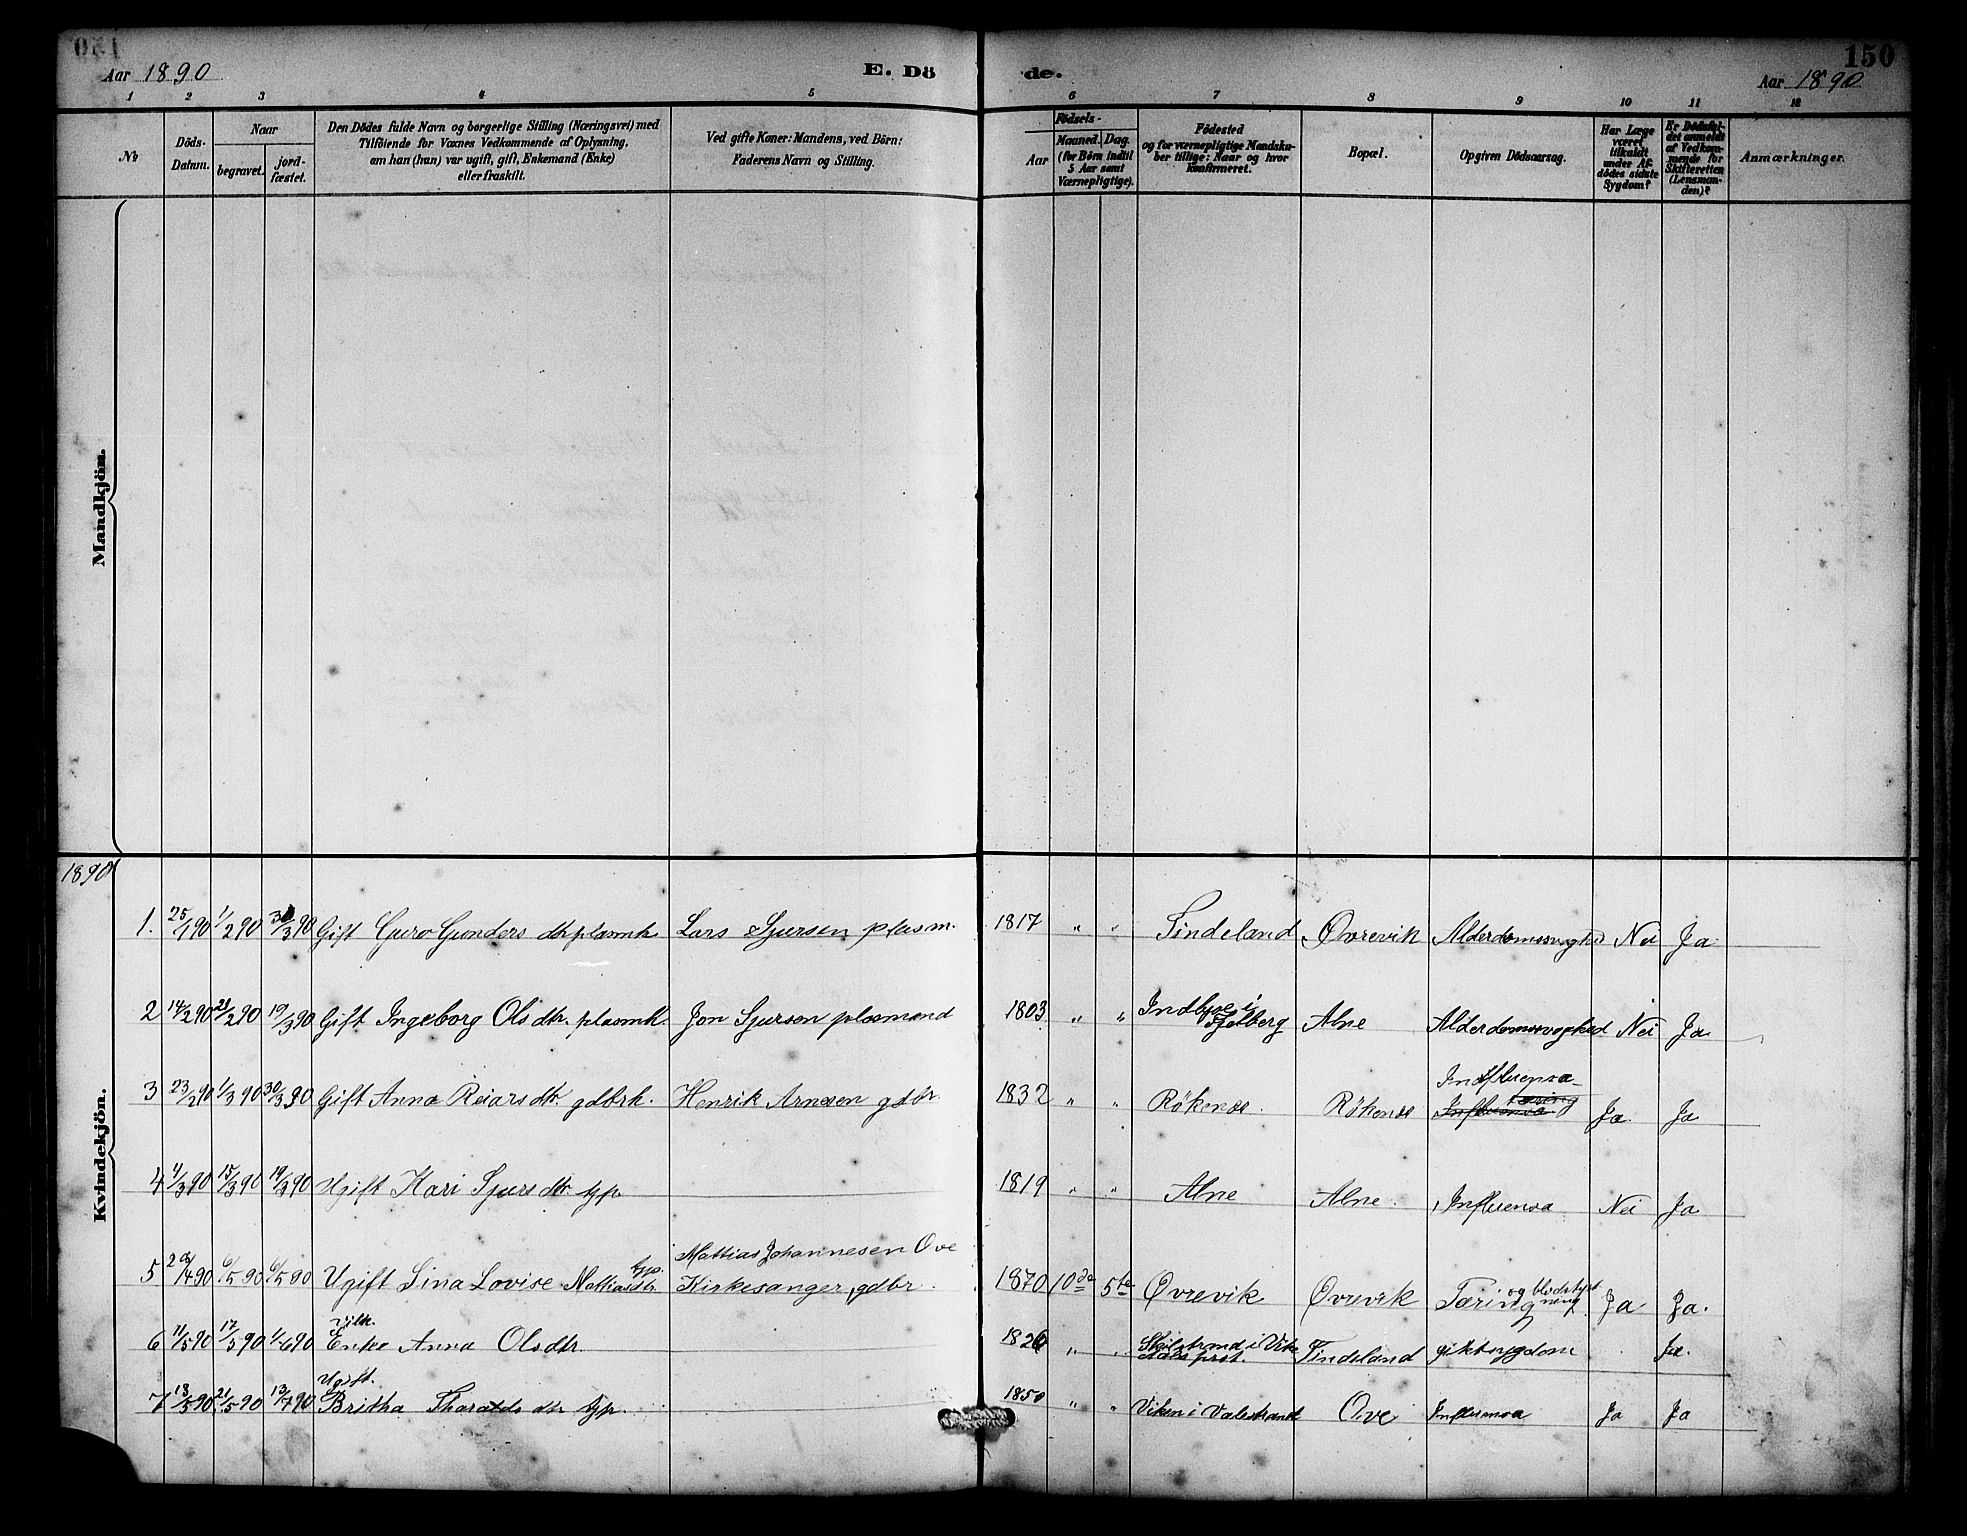 150
Aar 1890
E. Dö
de.
Aar 1890
1 2 3 4 5 6 7 8 9 10 11 12
No
Döds-
Datum.
Naar
begravet.
jord-
fæstet.
Den Dödes fulde Navn og borgerlige Stilling (Næringsvei) med
Tilföiende for Voxnes Vedkommende af Oplysning,
om han (hun) var ugift, gift, Enkemand (Enke)
eller fraskilt.
Ved gifte Koner: Mandens, ved Börn:
Faderens Navn og Stilling.
Födsels-
Aar
Maaned. Dag.
(for Börn indtil
5 Aar samt
Værnepligtige).
Födested
og for værnepligtige Mandska-
ber tillige: Naar og hvor
konfirmeret.
Bopæl.
Opgiven Dödsaarsag.
Har Læge
været
tilkaldt
under Af-
dödes sidste
Sygdom?
Er Dödsfal-
det anmeldt
af Vedkom-
mende for
Skifteretten
(Lensman-
den)?
Anmærkninger.
Mandkjön.
1890
Kvindekjön.
1. 25/1 90 1/2 90 30/3 90 Gift Guro Gunders dtr plasmk. Lars Sjursen plasm. 1817 " " Tindeland Øvrevik Alderdomssvaghed Nei Ja
2 14/2 90 23/2 90 19/3 90 Gift Ingeborg Olsdtr. plasmk. Jon Sjursen plasmand 1803 " " Indbyee i Fjelberg Alne Alderdomssvaghed Nei Ja
3 23/2 90 1/3 90 30/3 90 Gift Anna Reiarsdtr. gdbrk. Henrik Arnesen gdbr. 1832 " " Røkenæs. Røkenæs Influensa Tæring Ja Ja
4 4/3 90 15/3 90 19/3 90 Ugift Kari Sjursdtr. tjp. 1819 " " Alne Alne. Influensa Nei Ja
5 26/4 90 6/5 90 6/5 90 Ugift Sina Lovise Mattiasdtr. tjp. Mattias Johannesen Ove
Kirkesanger, gdbr. 1870 10de 5te Øvrevik Øvrevik Tæring og blodstyrtning Ja Ja.
6 11/5 90 17/5 90 1/6 90 Enke Anna Olsdtr 1826 " " Tindeland giktsygdom Ja.
7 18/5 90 21/5 90 13/7 90 Ugift. Britha Tharaldsdtr tjp. 1850 " " Viken i Valestrand Ove Influensa Ja Ja